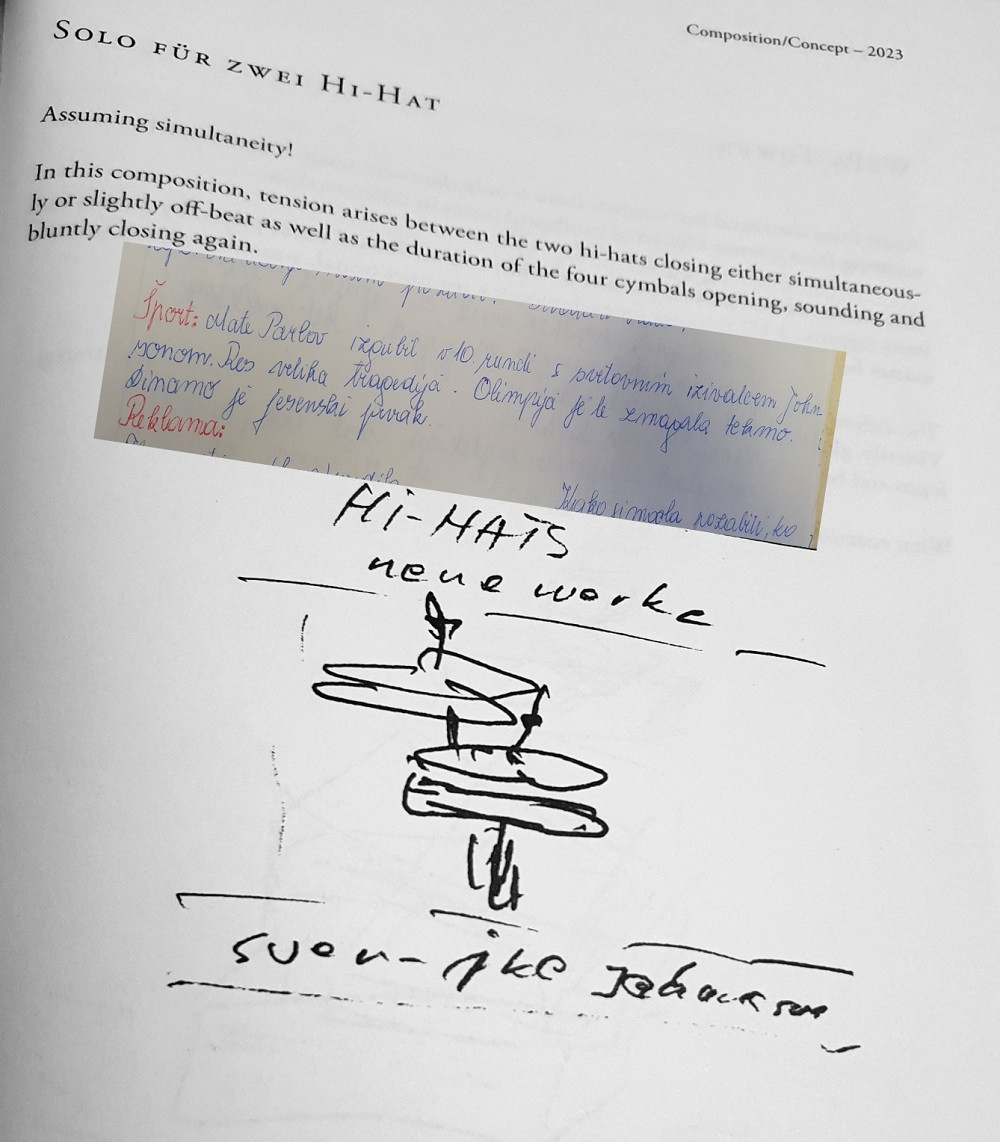 Composition/Concept – 2023
SOLO FÜR ZWEI HI-HAT
Assuming simultaneity!
In this composition, tension arises between the two hi-hats closing either simultaneous-
ly or slightly off-beat as well as the duration of the four cymbals opening, sounding and
bluntly closing again.
Šport: Mate Parlov izgubil v 10. rundi s svetovnim izivalcem John
sonom. Res velika tragedija. Olimpija je le zmagala tekmo.
Dinamo je jesenski prvak.
Reklama:
Kako si mogla pozabiti, ko
Hi-HATS
neue werke
sven-åke Johansson